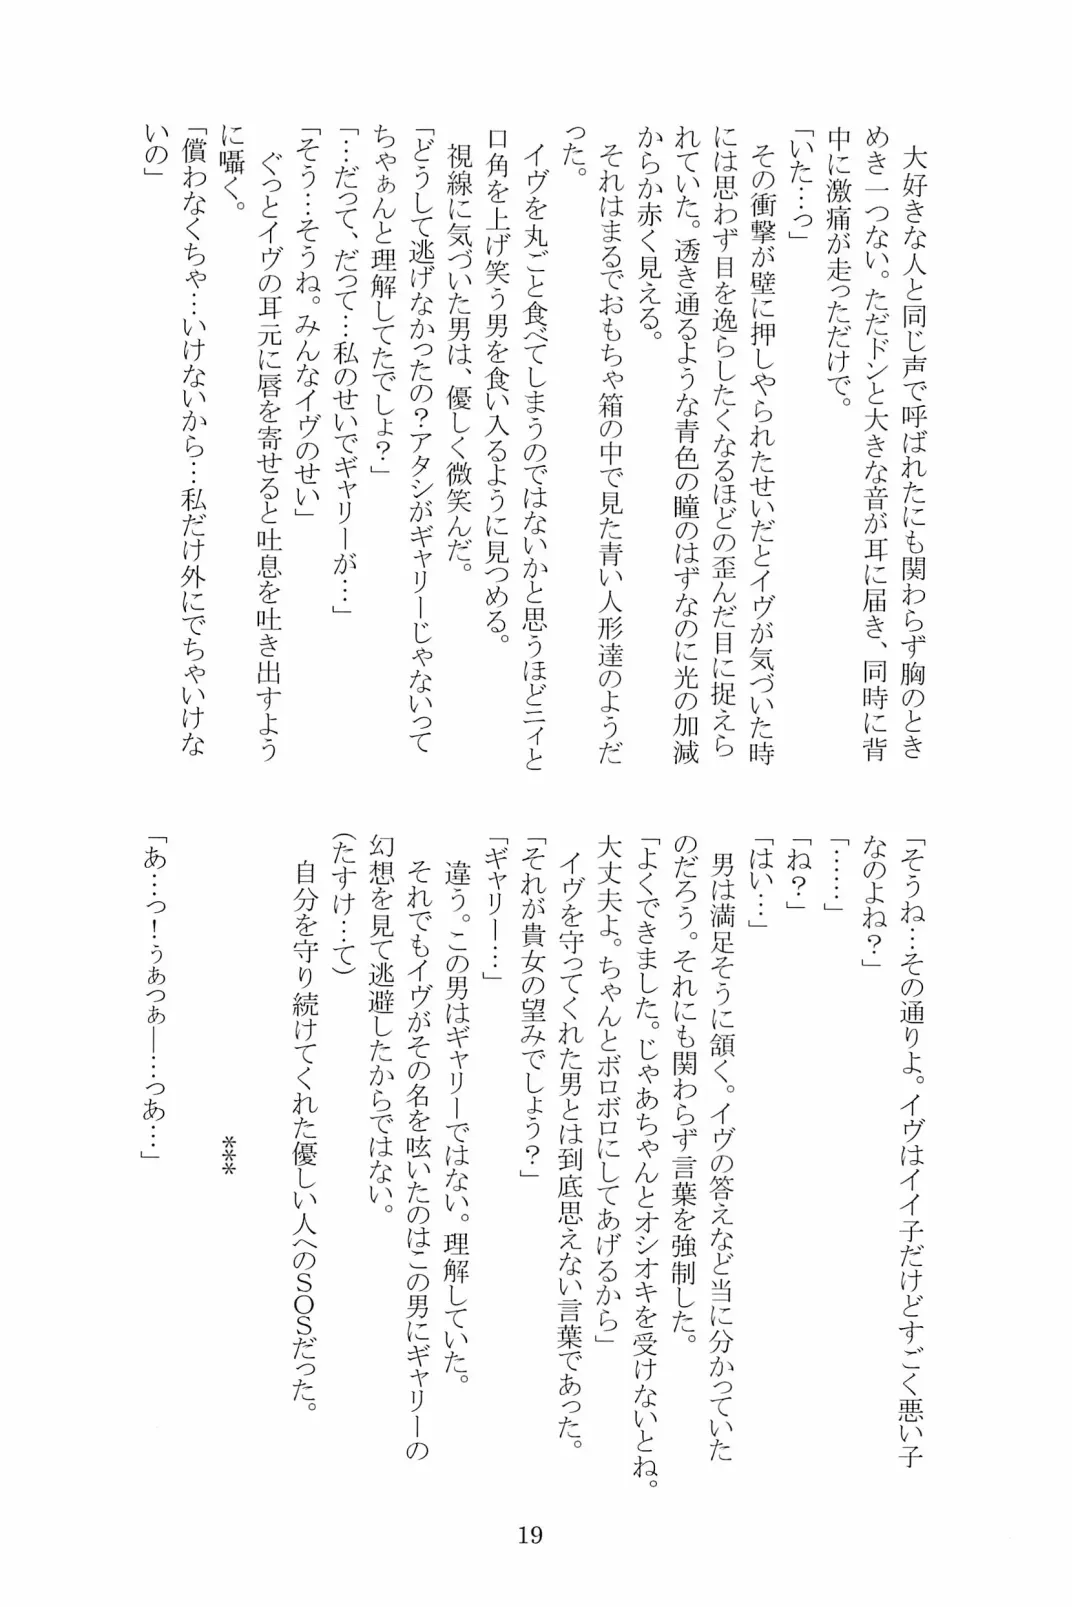 大好きな人と同じ声で呼ばれたにも関わらず胸のとき
めき一つない。ただドンと大きな音が耳に届き、同時に背
中に激痛が走っただけで。
「いた…っ」
その衝撃が壁に押しやられたせいだとイヴが気づいた時
には思わず目を逸らしたくなるほどの歪んだ目に捉えら
れていた。透き通るような青色の瞳のはずなのに光の加減
からか赤く見える。
それはまるでおもちゃ箱の中で見た青い人形達のようだ
った。
イヴを丸ごと食べてしまうのではないかと思うほどニィと
口角を上げ笑う男を食い入るように見つめる。
視線に気づいた男は、優しく微笑んだ。
「どうして逃げなかったの？アタシがギャリーじゃないって
ちゃぁんと理解してたでしょ？」
「…だって、だって…私のせいでギャリーが…」
「そう…そうね。みんなイヴのせい」
ぐっとイヴの耳元に唇を寄せると吐息を吐き出すよう
に囁く。
「償わなくちゃ…いけないから…私だけ外にでちゃいけな
いの」
「そうね…その通りよ。イヴはイイ子だけどすごく悪い子
なのよね？」
「……」
「ね？」
「はい…」
男は満足そうに頷く。イヴの答えなど当に分かっていた
のだろう。それにも関わらず言葉を強制した。
「よくできました。じゃあちゃんとオシオキを受けないとね。
大丈夫よ。ちゃんとボロボロにしてあげるから」
イヴを守ってくれた男とは到底思えない言葉であった。
「それが貴女の望みでしょう？」
「ギャリー…」
違う。この男はギャリーではない。理解していた。
それでもイヴがその名を呟いたのはこの男にギャリーの
幻想を見て逃避したからではない。
（たすけ…て）
自分を守り続けてくれた優しい人へのＳＯＳだった。
***
「あ…っ！ぅぁっぁ――…っあ…」
19